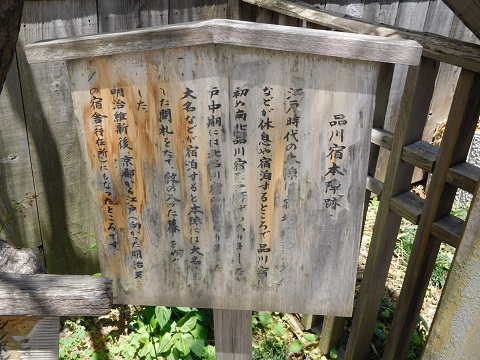 品川宿本陣跡
江戸時代の大
などが休息や宿泊するところで品川宿
初め南北品川宿に一軒ずつありました
戸中期には北品川宿の
大名などが宿泊すると本陣には大名
した関札をたて、紋の入った幕を
した。
明治維新後、京都から江戸へ向かった明治天
の宿舎(行在所)にもなったところです